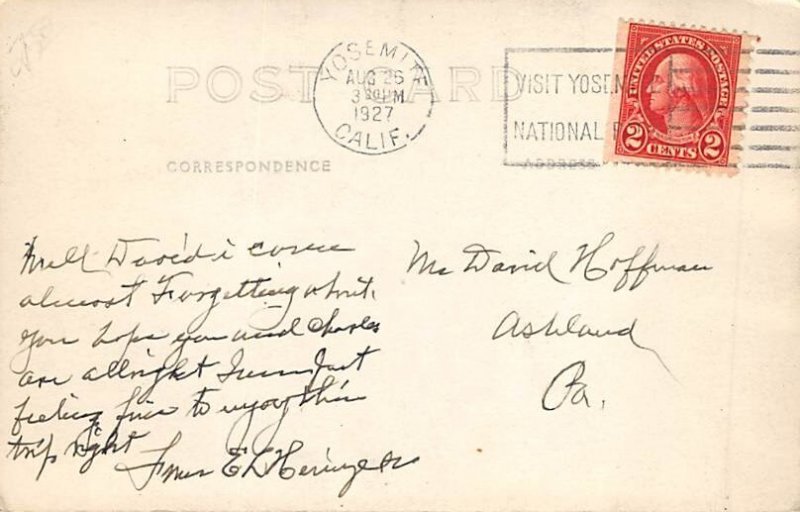 POST CARD
YOSEMITE
AUG 26
3 30 PM
1927
CALIF.
VISIT YOSEM
NATIONAL P
UNITED STATES POSTAGE
2 CENTS 2
CORRESPONDENCE
ADDRESS
Well David i come
almost Forgetting about
you hope you and Charles
are allright I am Just
feeling fine to enjoy this
trip right
From E L
Mr David Hoffman
Ashland
Pa.